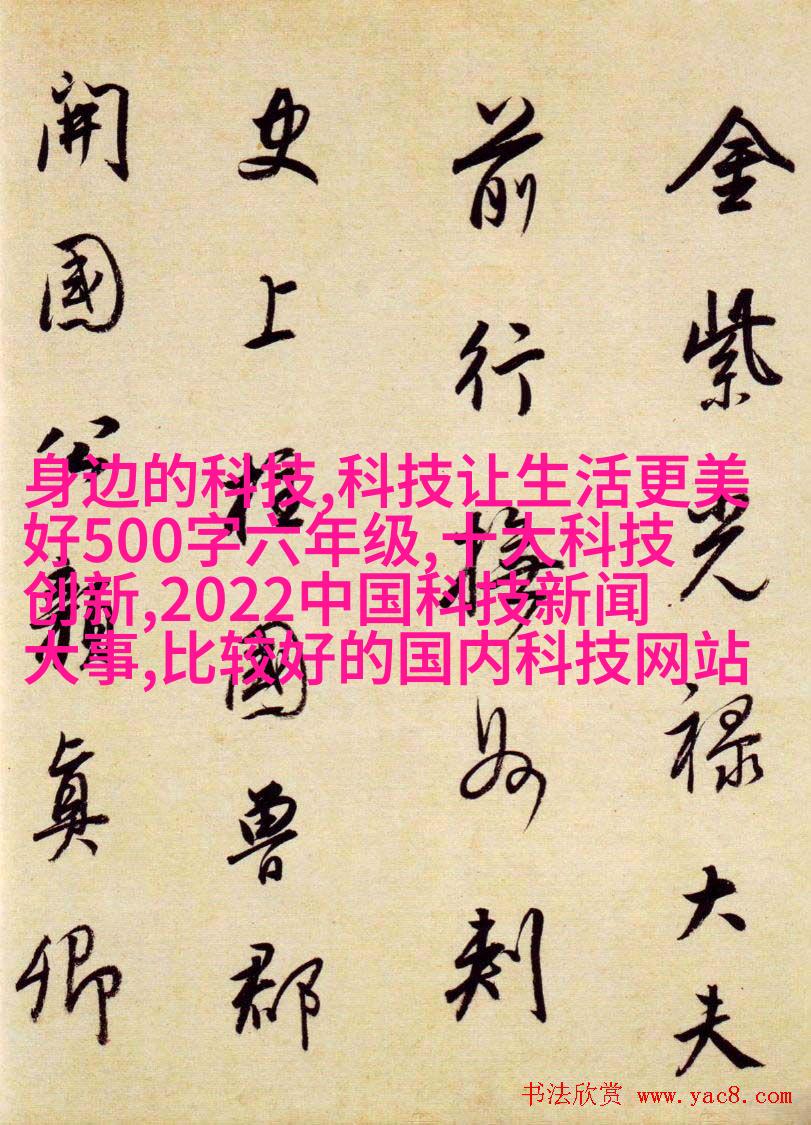 金紫光禄大夫
前行撫州刺
史上柱國魯郡
開國公顏真卿
身边的科技,科技让生活更美
好500字六年级,十大科技
创新,2022中国科技新闻
大事,比较好的国内科技网站
书法欣赏 www.yac8.com